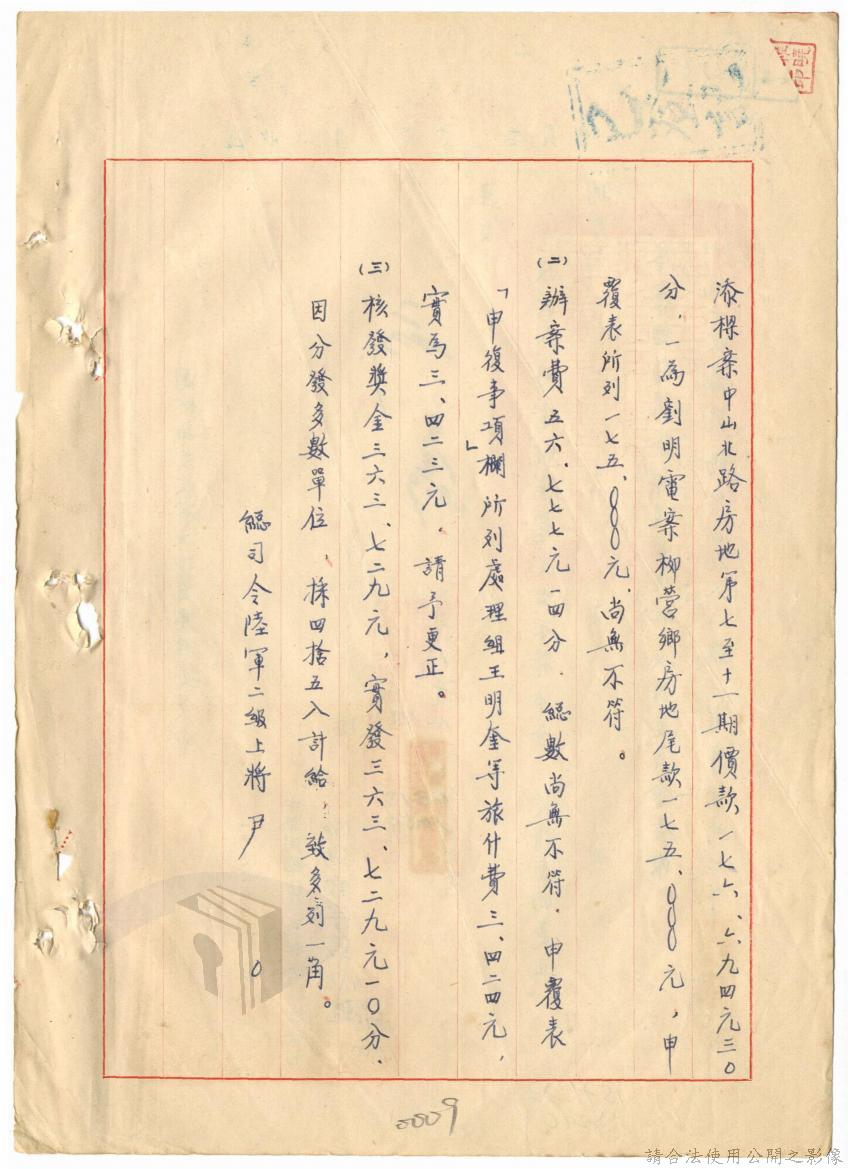 添樑案中山北路房地第七至十一期價款一七六、六九四元三〇
分,一為劉明電案柳營鄉房地尾款一七五、〇〇〇元,申
覆表所列一七五、〇〇〇元,尚無不符。
(二)辦案費五六、七七七元一四分.總數尚無不符.申覆表
「申復事項欄」所列處理組王明奎等旅什費三、四二四元,
實為三、四二三元.請予更正。
(三)核發獎金三六三、七二九元,實發三六三、七二九元一〇分.
因分發多數單位,採四捨五入計給,致多列一角。
總司令陸軍二級上將尹
0009
請合法使用公開之影像